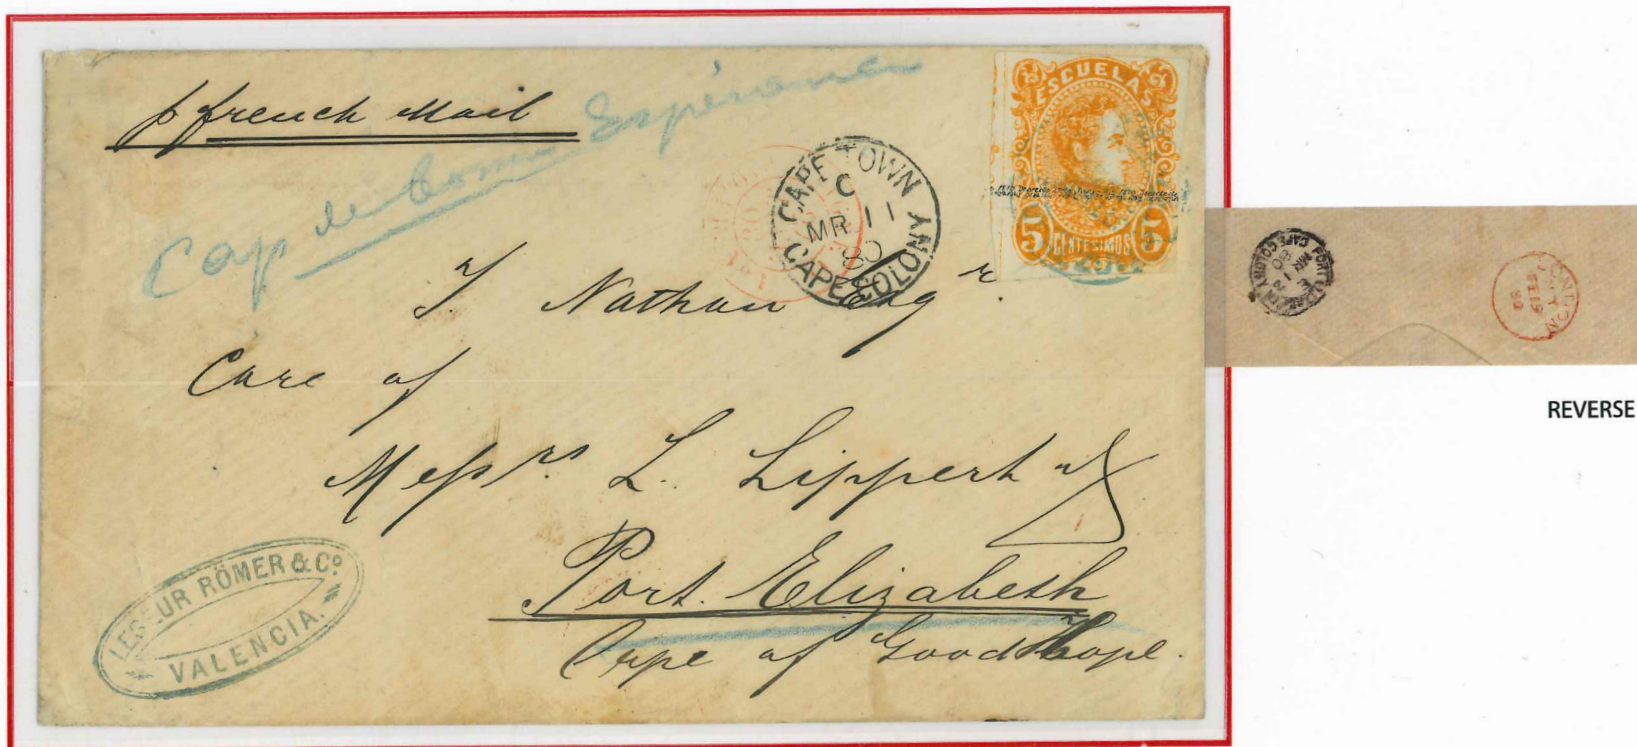 p french Mail
Cap de Bonne Espérance
ESCUELAS
5 CENTESIMOS 5
CAPE TOWN
C
MR 11
80
CAPE COLONY
J Nathan Esqr.
Care of
Messrs L. Lippert
Port. Elizabeth
Cape of Good Hope.
LESEUR RÖMER & Co
VALENCIA.
PORT ELIZABETH
MR 1
80
CAPE COLONY
LONDON
FE 19
80
REVERSE